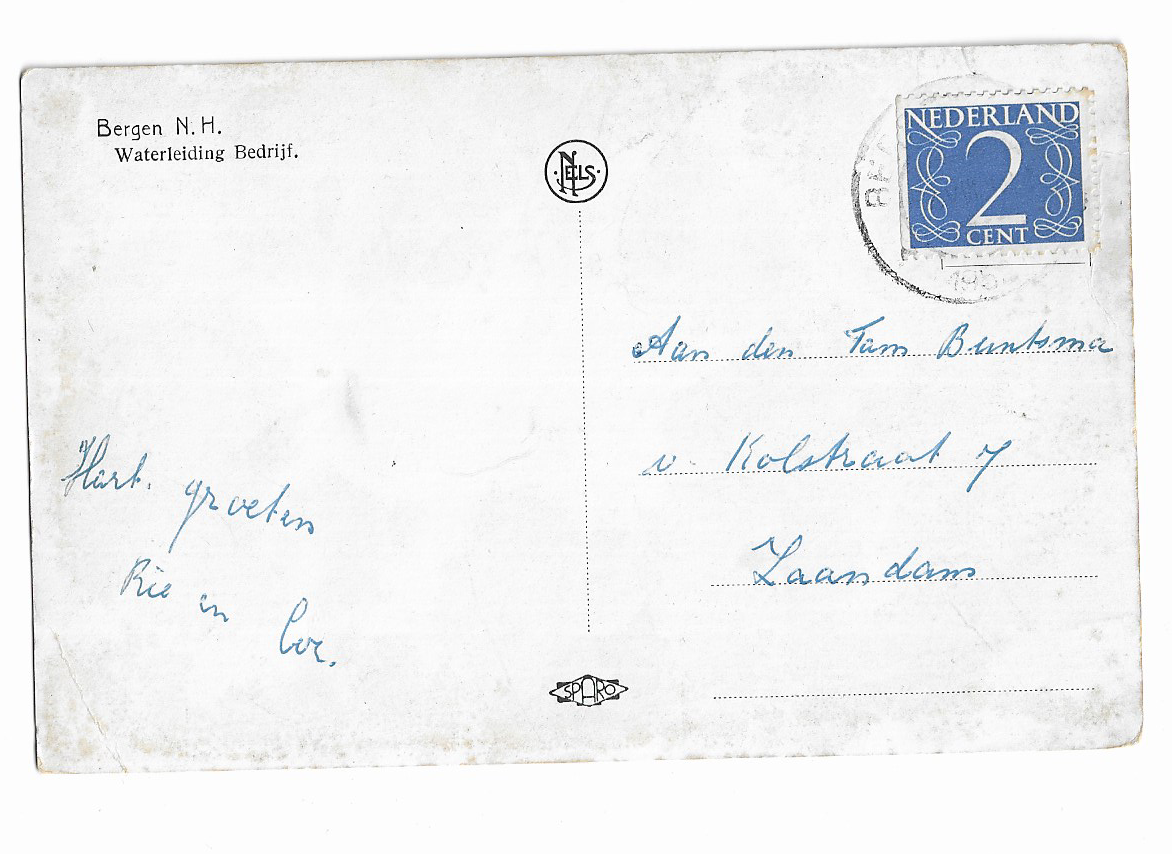 Bergen N. H.
Waterleiding Bedrijf.
NELS
NEDERLAND
2
CENT
Aan den Fam Buntsma
v. Kolstraat 7
Zaandam
Hart. groeten
Rie en Cor.
SPARO